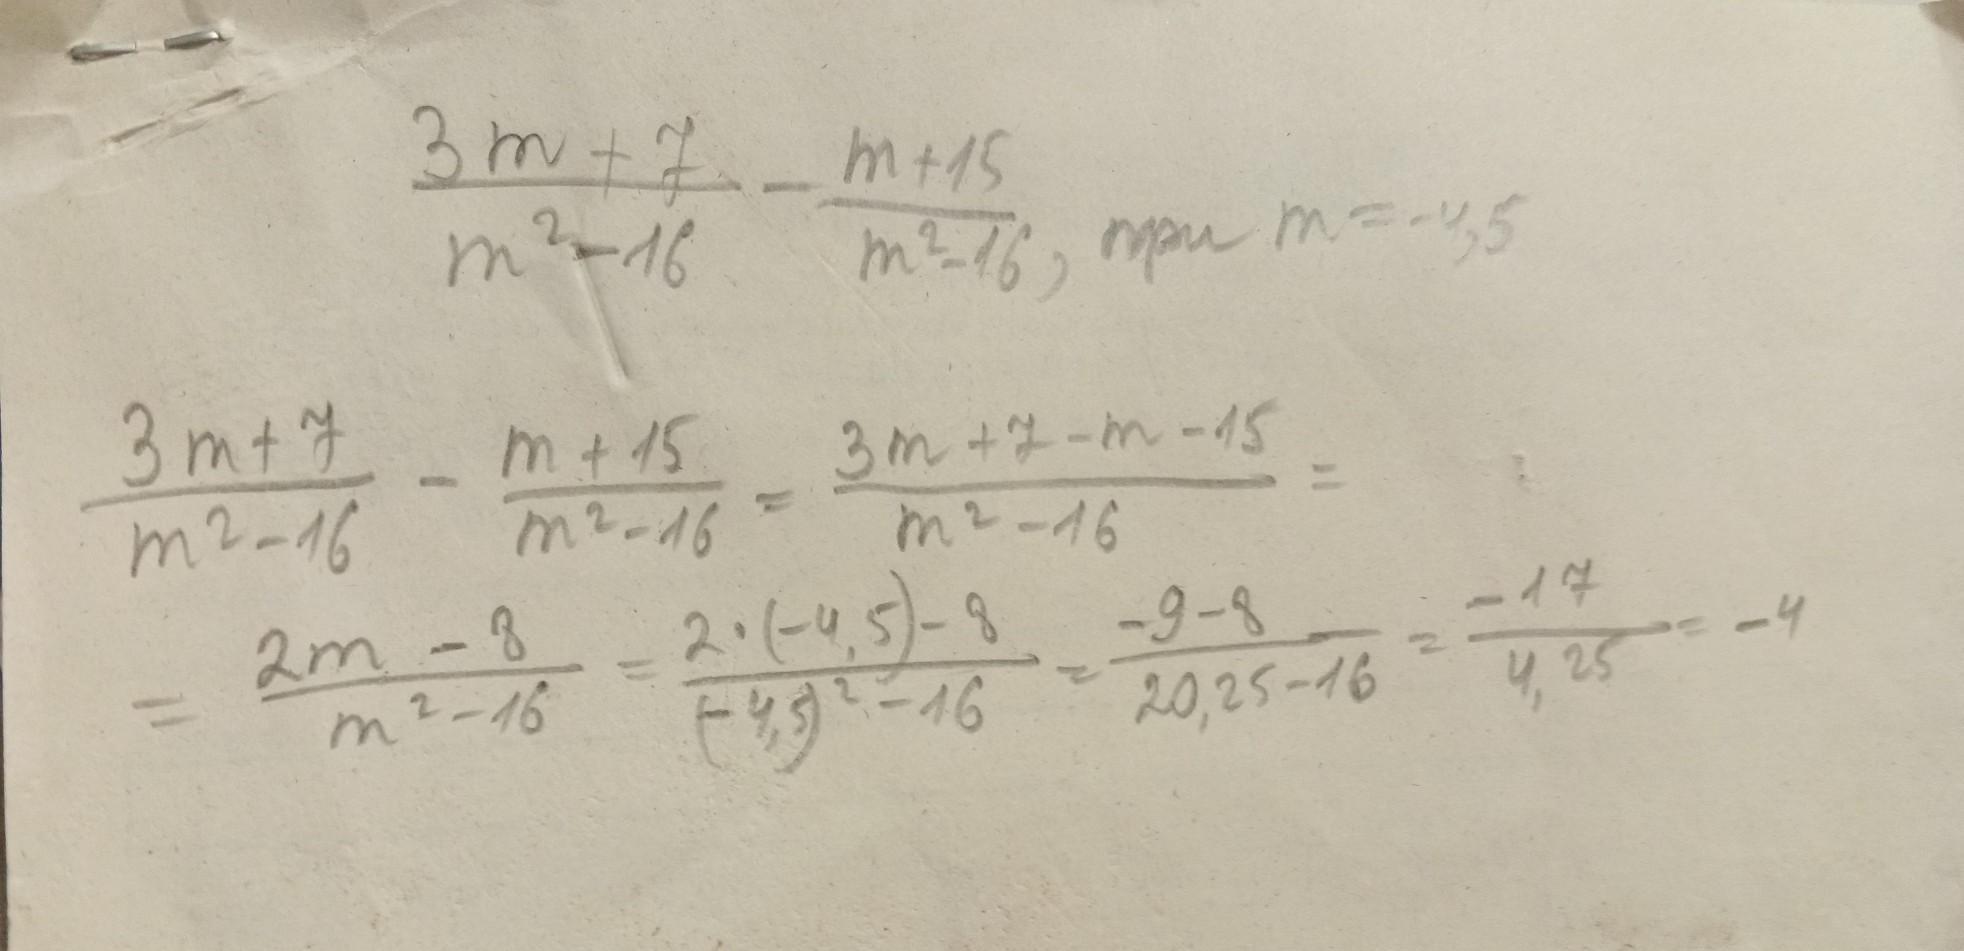 (3m+7)/(m²-16) - (m+15)/(m²-16), при m=-4,5
(3m+7)/(m²-16) - (m+15)/(m²-16) = (3m+7-m-15)/(m²-16) =
= (2m-8)/(m²-16) = (2·(-4,5)-8)/((-4,5)²-16) = (-9-8)/(20,25-16) = (-17)/(4,25) = -4